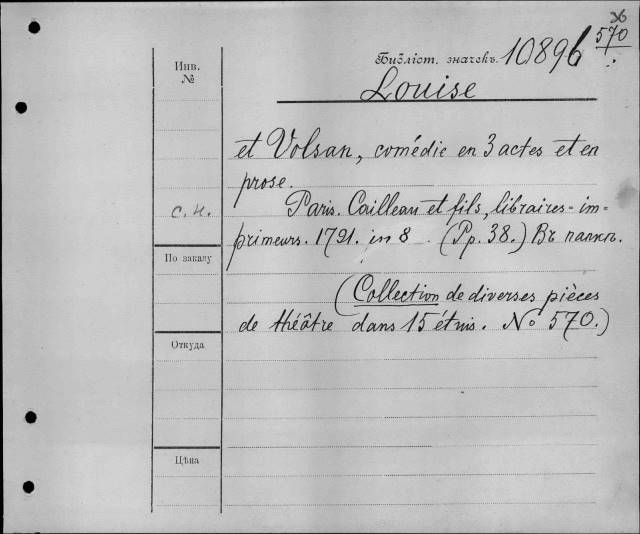 36
570
Библіот. значекъ. 10896
Инв.
№
Louise
et Volsan, comédie en 3 actes et en
prose.
с. н.
Paris. Cailleau et fils, libraires=im=
primeurs. 1791. in 8. (Pp. 38.) Въ папкѣ.
По заказу
(Collection de diverses pièces
de théâtre dans 15 étuis. No 570.)
Откуда
Цѣна